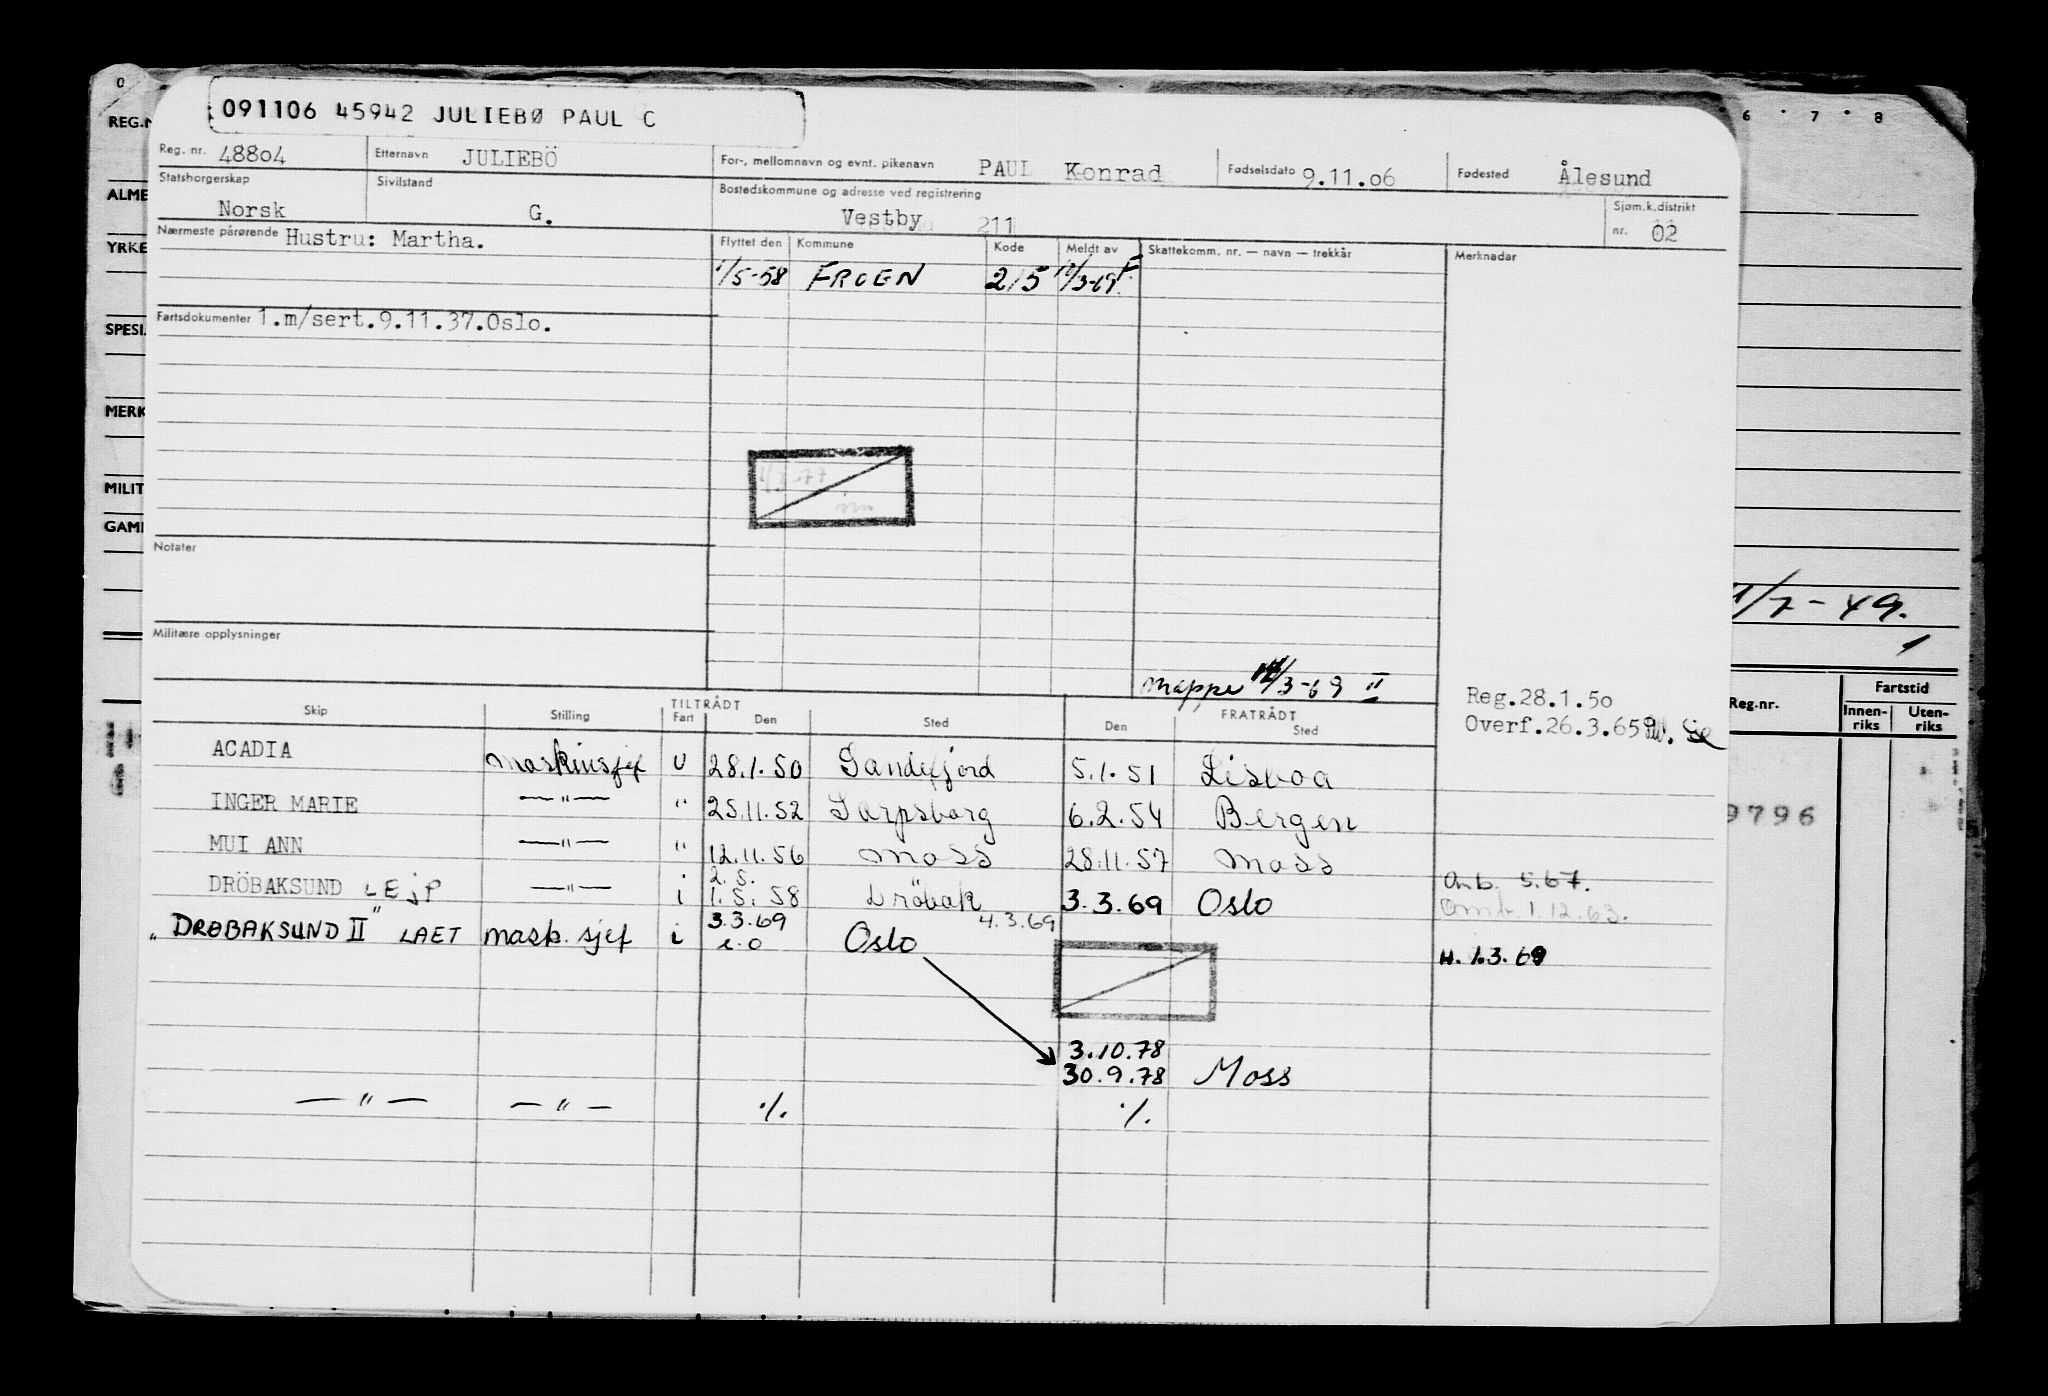 091106 45942 JULIEBØ PAUL C
Reg. nr. 48804 Etternavn JULIEBÖ For-, mellomnavn og evnt. pikenavn PAUL Konrad Fødselsdato 9.11.06 Fødested Ålesund
Statsborgerskap Norsk Sivilstand G. Bostedskommune og adresse ved registrering Vestby 211 Sjøm.k.distrikt nr. 02
Nærmeste pårørende Hustru: Martha. Flyttet den Kommune Kode Meldt av Skattekomm. nr. — navn — trekkår Merknader
1/5-58 FROEN 215
Fartsdokumenter 1.m/sert.9.11.37.Oslo.
Notater
Militære opplysninger
Mappe 12/3-69 II
Reg.28.1.50
Overf.26.3.65
Skip Stilling TILTRÅDT Fart Den Sted FRATRÅDT Den Sted
ACADIA maskinsjef U 28.1.50 Sandefjord 5.1.51 Lisboa
INGER MARIE —"— " 25.11.52 Sarpsborg 6.2.54 Bergen
MUI ANN —"— " 12.11.56 Moss 28.11.57 Moss
2.5.
DRÖBAKSUND LEJP —"— i 1.5.58 Dröbak 3.3.69 Oslo
Anb. 5.67.
Omt. 1.12.63.
3.3.69 4.3.69
"DRØBAKSUND II" LAET mask. sjef i e.o Oslo
H. 1.3.69
3.10.78
30.9.78 Moss
—"— —"— ·/. ·/.
0
REG.N
ALME
YRKE
SPESI
MERK
MILIT
GAM
6 7 8
1/7-49.
Reg.nr. Fartstid
Innen-riks Uten-riks
9796